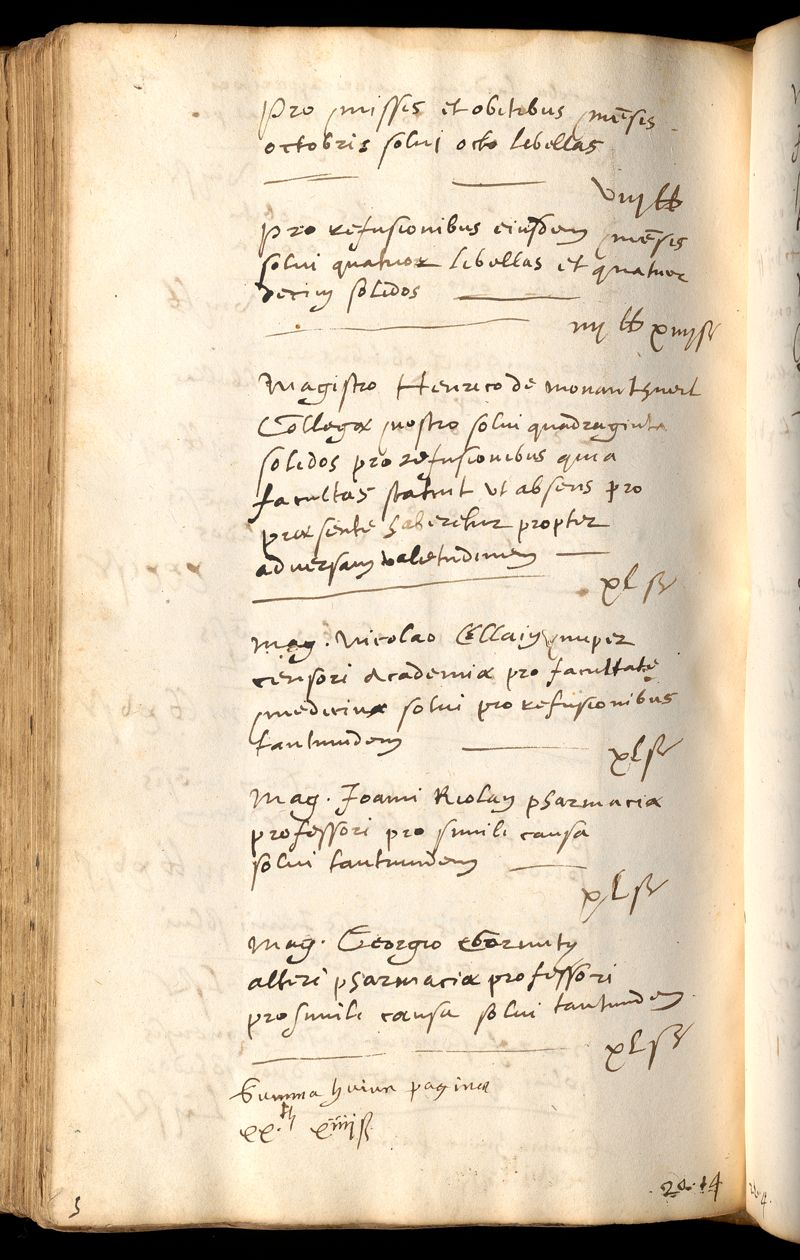 Pro missis et obitibus mēsis
octobris solui octo libellas
viij ℔
Pro refusionibus eiusdem mēsis
solui quatuor libellas et quatuor
decim solidos
iiij ℔ xiiij ß
Magistro Henrico de monanthueil
Collegæ nostro solui quadraginta
solidos pro refusionibus quia
facultas statuit ut absens pro
præsente haberetur propter
adversam valetudinem
xl ß
mag. Nicolao Ellain nuper
censori Academiæ pro facultate
medicinæ solui pro refusionibus
tantundem
xl ß
Mag. Joanni Riolan pharmaciæ
professori pro simili causa
solui tantundem
xl ß
Mag. Georgio Cornuty
alteri pharmaciæ professori
pro simili causa solui tantundem
xl ß
Summa huius paginæ
xx ℔ xiiij ß
20.14